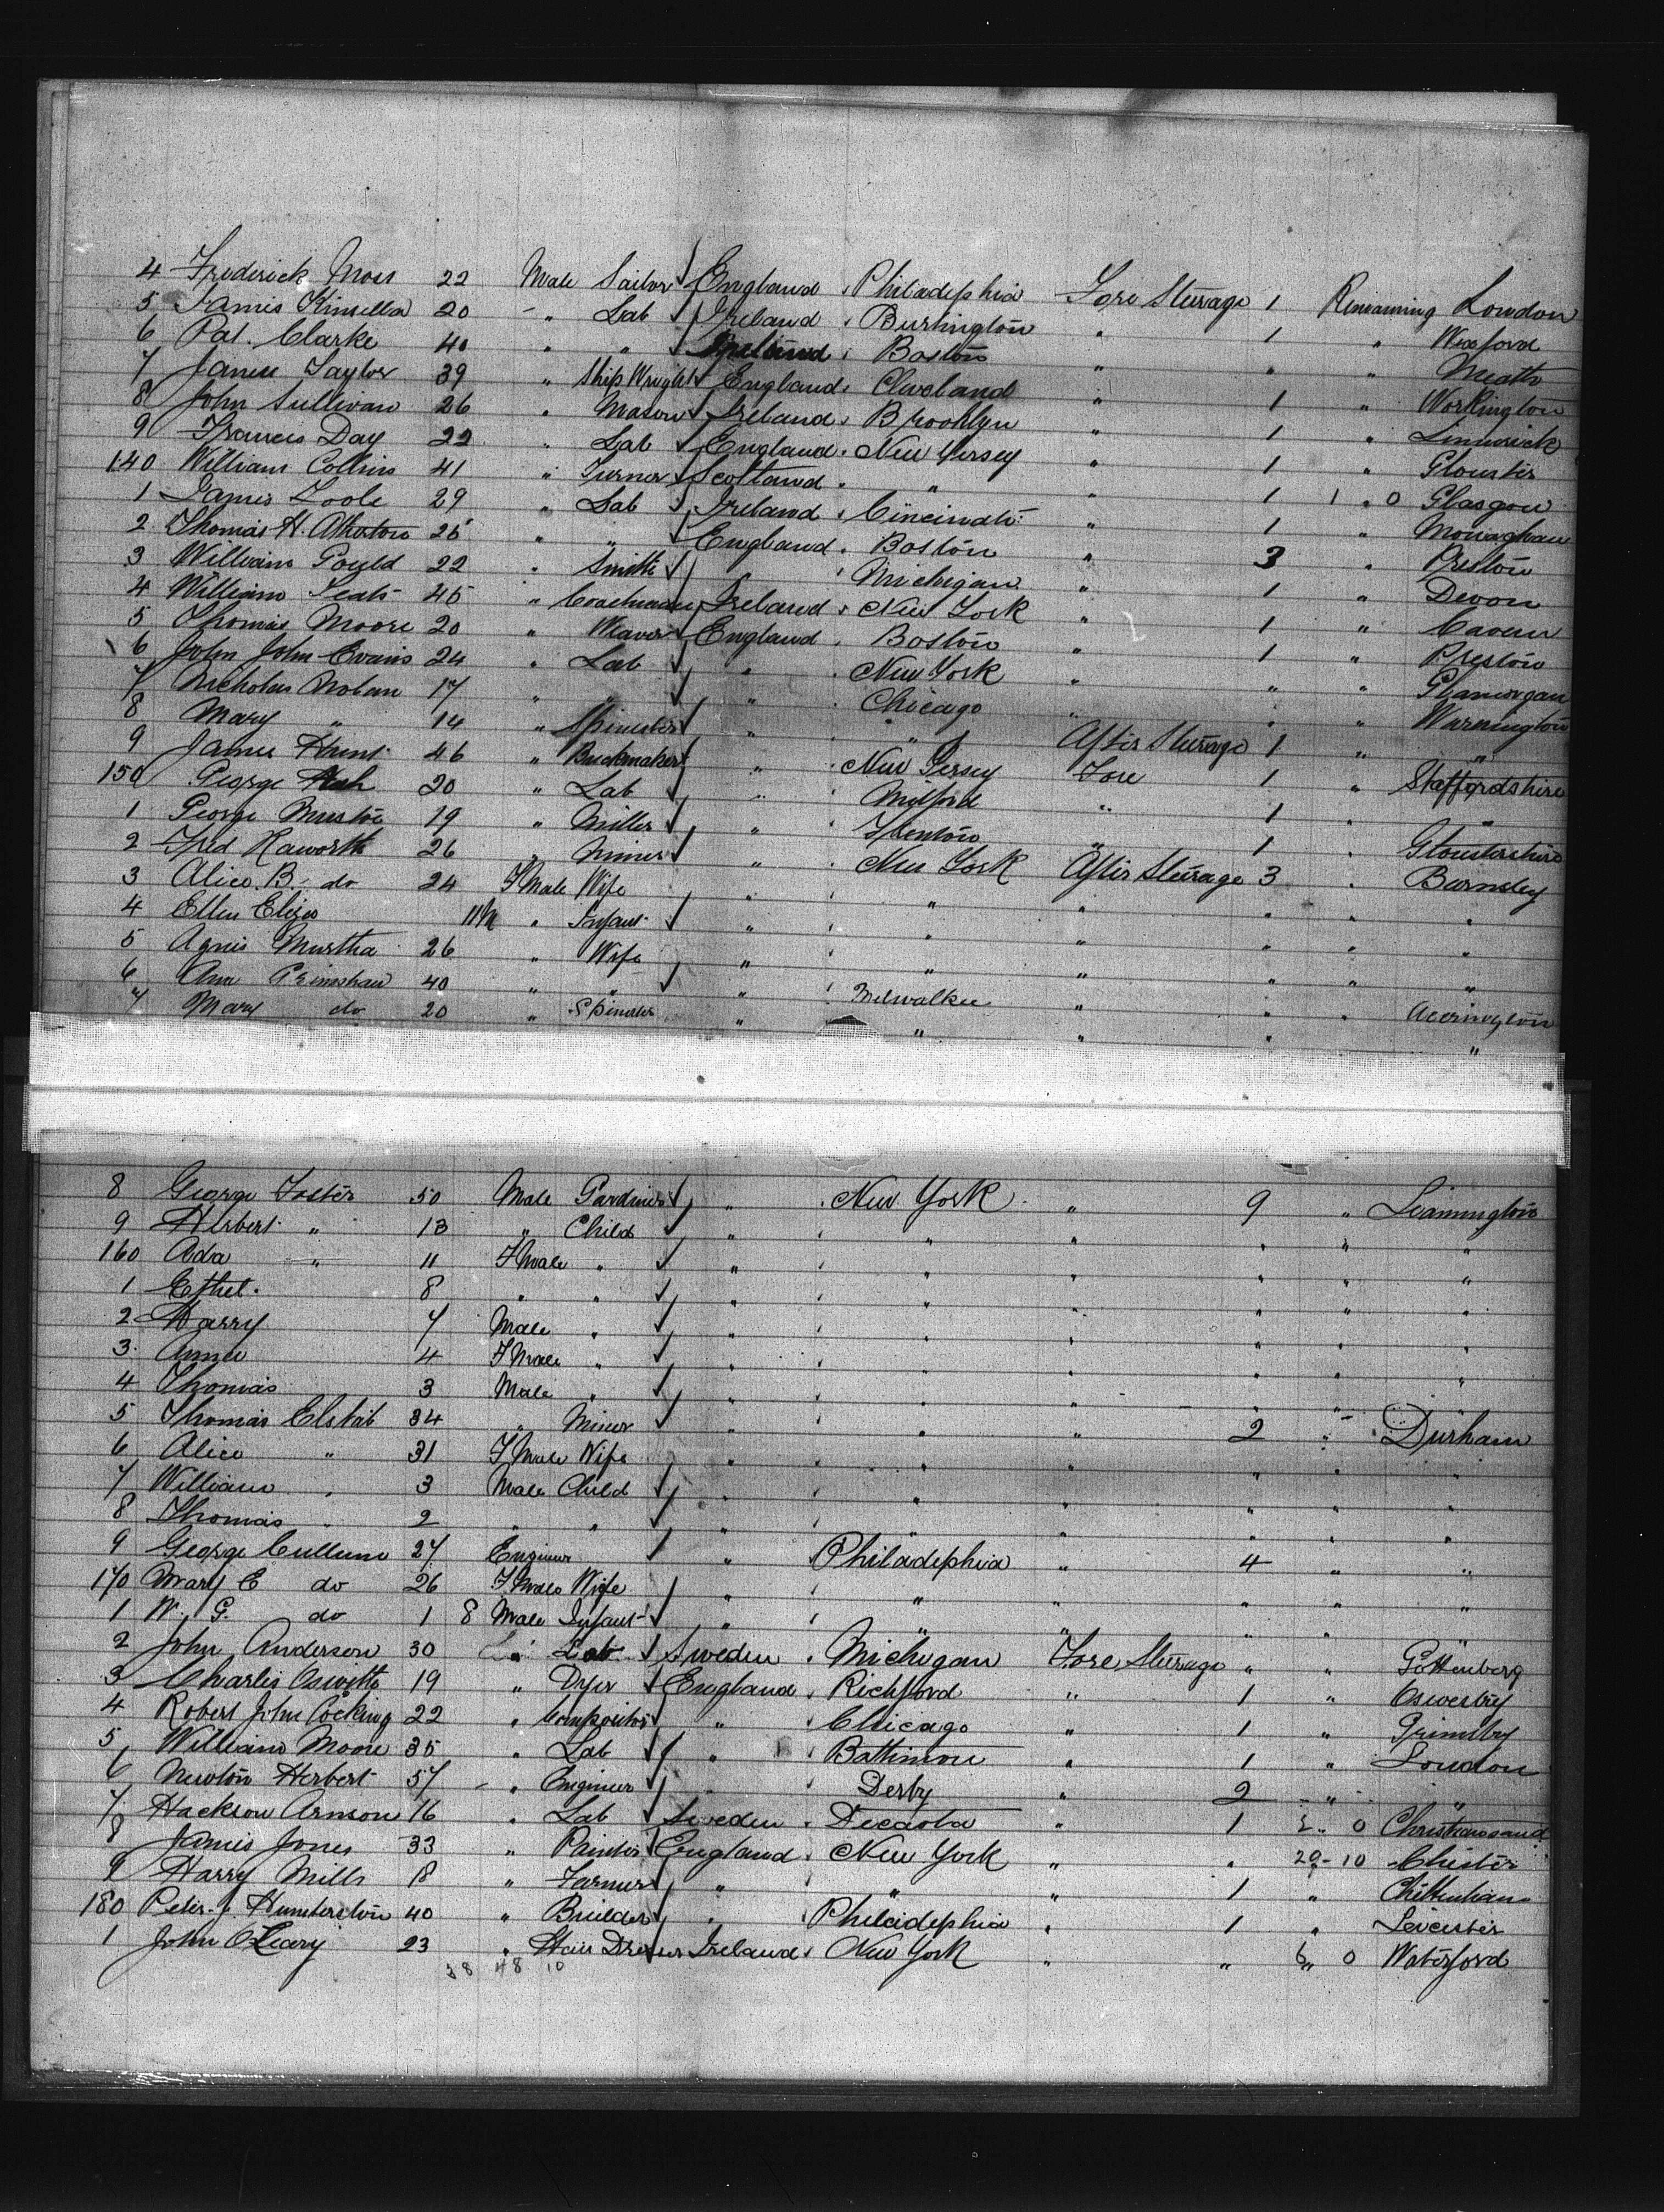 4 Frederick Moss 22 Male Sailor England Philadephia Fore Steerage 1 Remaining London
5 James Kinsella 20 " Lab Ireland Burlington " 1 " Wexford
6 Pat. Clarke 40 " " Ireland Boston " " " Meath
7 James Taylor 39 " Ship Wright England Cleveland " 1 " Workington
8 John Sullivan 26 " Mason Ireland Brooklyn " 1 " Limerick
9 Francis Day 22 " Lab England New Jersey " 1 " Glouster
140 William Collins 41 " Turner Scotland " " 1 1 " 0 Glasgow
1 James Toole 29 " Lab Ireland Cincinati " 1 " Monaghan
2 Thomas H. Atherton 25 " " England Boston " 3 " Preston
3 William Gould 22 " Smith Michigan " 1 " Devon
4 William 45 " Coachman Ireland New York " 1 " Cavan
5 Thomas Moore 20 " Weaver England Boston " 1 " Preston
6 John John Evans 24 " Lab " New York " " " Glamorgan
7 Nicholas Nolan 17 " " " Chicago " " " Warrington
8 Mary " 14 " Spinster " " After Steerage 1 " "
9 James Hunt 46 " Brickmaker " New Jersey Fore 1 " Staffordshire
150 George Ash 20 " Lab " Milford " 1 " "
1 George Mustoe 19 " Miller " Trenton " 1 " Gloustershire
2 Fred Haworth 26 " Miner " New York After Steerage 3 " Barnsley
3 Alice. B. do 24 FMale Wife " " " " " "
4 Ellen Eliza 11M " Infant " " " " " "
5 Agnes Murtha 26 " Wife " " " " " "
6 Ann Grimshaw 40 " " " Milwalkee " " " Accrington
7 Mary do 20 " Spinster " " " " "
8 George Foster 50 Male Gardiner " New York " 9 " Leamington
9 Herbert " 13 " Child " " " " " "
160 Ada " 11 FMale " " " " " " "
1 Ethel. 8 " " " " " " " "
2 Harry 7 Male " " " " " " "
3 Annie 4 FMale " " " " " " "
4 Thomas 3 Male " " " " " "
5 Thomas 34 " Miner " " " 2 " Durham
6 Alice " 31 FMale Wife " " " " " "
7 William " 3 Male Child " " " " " "
8 Thomas " 2 " " " " " " " "
9 George Cullum 27 Engineer " Philadephia " 4 " "
170 Mary E do 26 FMale Wife " " " " " "
1 W. G. do 1 8 Male Infant " " " " "
2 John Anderson 30 " Lab Sweden Michigan Fore Steerage " " Gottenberg
3 Charles 19 " Dyer England Richford " 1 " Oswestry
4 Robert John Cocking 22 " Compositor " Chicago " 1 " Grimsby
5 William Moore 35 " Lab " Baltimore " 1 " London
6 Newton Herbert 57 " Engineer " Derby " 2 " "
7 Hackson Arnson 16 " Lab Sweden Decaota " 1 2 " 0 Christiansand
8 James Jones 33 " Painter England New York " " 29-10 Chester
9 Harry Mills 18 " Farmer " " " 1 " Chittenham
180 Peter J. Humberston 40 " Builder " Philadephia " 1 " Leicester
1 John O'Leary 23 " Hair Dresser Ireland New York " " 6 " 0 Waterford
38 48 10